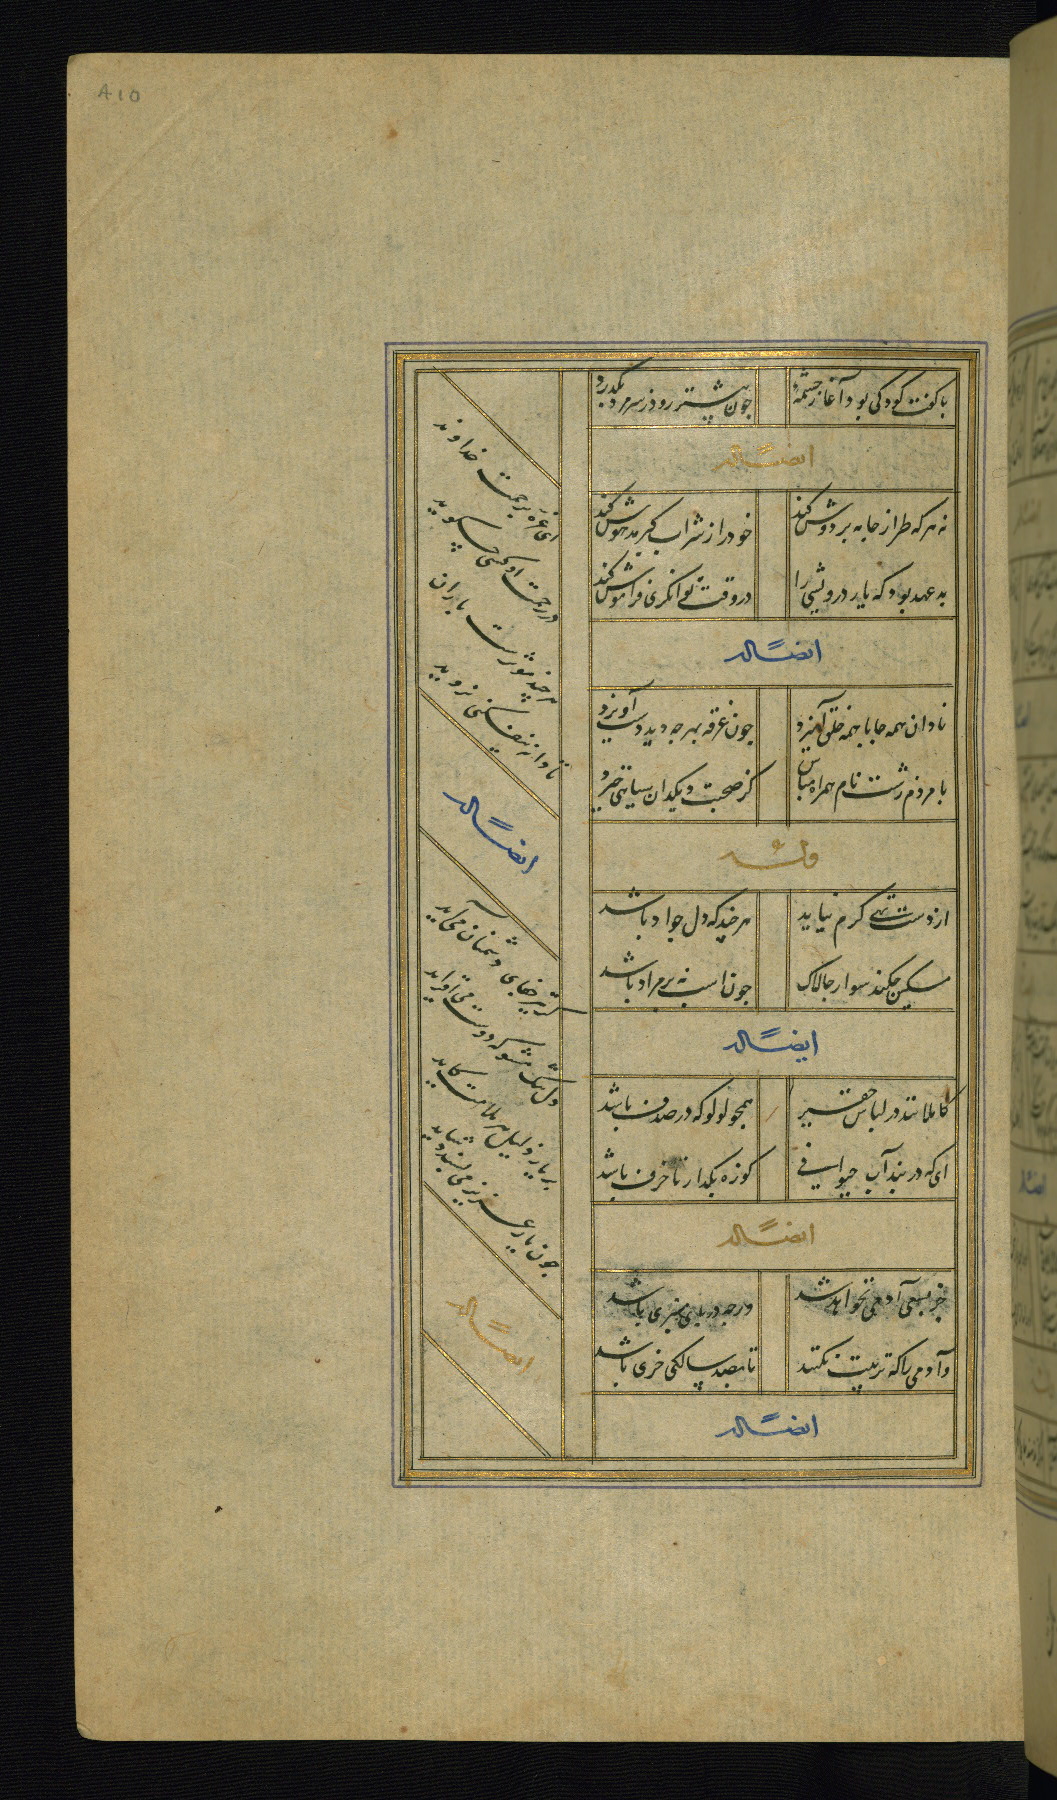 با کفت کودکی بود آغاز چشمه
چون بیشتر رود ز سر مرد بگذرد
ایضا له
نه هر که طراز جامه بر دوش کند
خود را ز شراب کبر مدهوش کند
بدعهد بود که یار درویشی را
در وقت توانکری فراموش کند
ایضا له
نادان همه جا با همه خلق آمیزد
چون غرقه بهر چه دید دست آویزد
با مردم زشت نام همراه مباش
کز صحبت دیکدان سیاهی خیزد
وله
از دست تهی کرم نیاید
هر چند که دل جواد باشد
مسکین چکند سوار چالاک
چون اسب نه بر مراد باشد
ایضا له
کاملانند در لباس حقیر
همچو لولو که در صدف باشد
ای که در بند آب حیوانی
کوزه بکذار تا خزف باشد
ایضا له
خر بسعی آدمی نخواهد شد
ورچه در پای منبری باشد
وآدمی را که تربیت نکنند
تا بصد سالکی خری باشد
ایضا له
ای غره برحمت خداوند
در رحمت او کسی چه کوید
هر چند مؤثرست باران
تا دانه نیفکنی نروید
ایضا له
کر تیر جفای دشمنان می آید
دل تنک مشو که دوست می افزاید
بر یار ذلیل هر ملامت کاید
چون یار عزیز می پسندد شاید
ایضا له
٨١٥